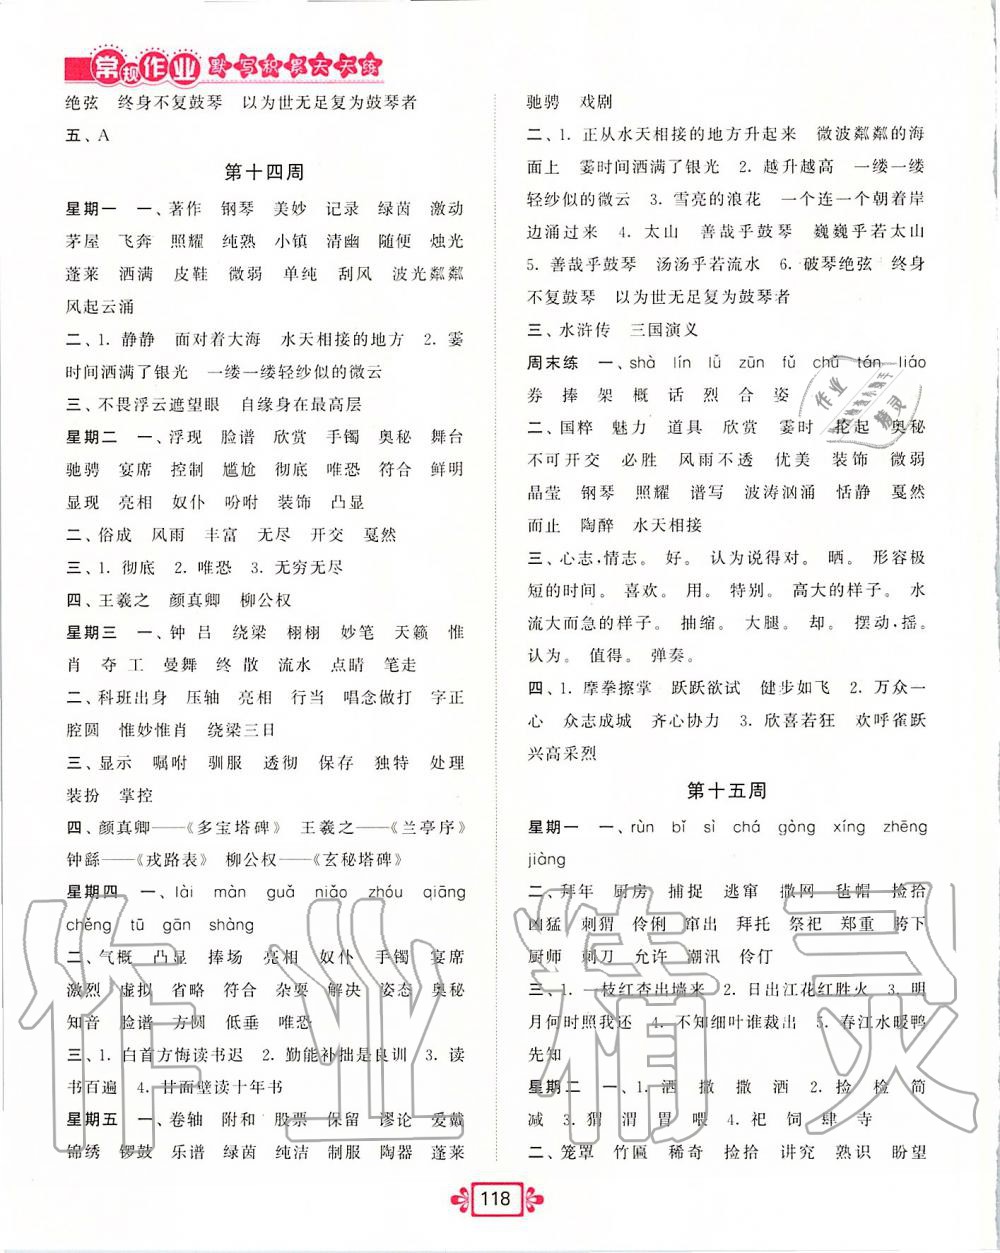 常规作业 默写积累天天练
绝弦 终身不复鼓琴 以为世无足复为鼓琴者
五、A
第十四周
星期一 一、著作 钢琴 美妙 记录 绿茵 激动
茅屋 飞奔 照耀 纯熟 小镇 清幽 随便 烛光
蓬莱 洒满 皮鞋 微弱 单纯 刮风 波光粼粼
风起云涌
二、1. 静静 面对着大海 水天相接的地方 2. 霎
时间洒满了银光 一缕一缕轻纱似的微云
三、不畏浮云遮望眼 自缘身在最高层
星期二 一、浮现 脸谱 欣赏 手镯 奥秘 舞台
驰骋 宴席 控制 尴尬 彻底 唯恐 符合 鲜明
显现 亮相 奴仆 吩咐 装饰 凸显
二、俗成 风雨 丰富 无尽 开交 戛然
三、1. 彻底 2. 唯恐 3. 无穷无尽
四、王羲之 颜真卿 柳公权
星期三 一、钟 吕 绕梁 栩栩 妙笔 天籁 惟
肖 夺 工 曼舞 终 散 流水 点睛 笔走
二、科班出身 压轴 亮相 行当 唱念做打 字正
腔圆 惟妙惟肖 绕梁三日
三、显示 嘱咐 驯服 透彻 保存 独特 处理
装扮 掌控
四、颜真卿——《多宝塔碑》 王羲之——《兰亭序》
钟繇——《戎路表》 柳公权——《玄秘塔碑》
星期四 一、lài màn guǎ niǎo zhóu qiāng
chěng tū gān shàng
二、气概 凸显 捧场 亮相 奴仆 手镯 宴席
激烈 虚拟 省略 符合 杂耍 解决 姿态 奥秘
知音 脸谱 方圆 低垂 唯恐
三、1. 白首方悔读书迟 2. 勤能补拙是良训 3. 读
书百遍 4. 甘面壁读十年书
星期五 一、卷轴 附和 股票 保留 谬论 爱戴
锦绣 锣鼓 乐谱 绿茵 纯洁 制服 陶器 蓬莱
驰骋 戏剧
二、1. 正从水天相接的地方升起来 微波粼粼的海
面上 霎时间洒满了银光 2. 越升越高 一缕一缕
轻纱似的微云 3. 雪亮的浪花 一个连一个朝着岸
边涌过来 4. 太山 善哉乎鼓琴 巍巍乎若太山
5. 善哉乎鼓琴 汤汤乎若流水 6. 破琴绝弦 终身
不复鼓琴 以为世无足复为鼓琴者
三、水浒传 三国演义
周末练 一、shà lín lǚ zūn fǔ chǔ tán liáo
券 捧 架 概 话 烈 合 姿
二、国粹 魅力 道具 欣赏 霎时 抡起 奥秘
不可开交 必胜 风雨不透 优美 装饰 微弱
晶莹 钢琴 照耀 谱写 波涛汹涌 恬静 戛然
而止 陶醉 水天相接
三、心志,情志。 好。 认为说得对。 晒。 形容极
短的时间。 喜欢。 用。 特别。 高大的样子。 水
流大而急的样子。 抽缩。 大腿。 却。 摆动,摇。
认为。 值得。 弹奏。
四、1. 摩拳擦掌 跃跃欲试 健步如飞 2. 万众一
心 众志成城 齐心协力 3. 欣喜若狂 欢呼雀跃
兴高采烈
第十五周
星期一 一、rùn bǐ sì chá gòng xíng zhēng
jiàng
二、拜年 厨房 捕捉 逃窜 撒网 毡帽 捡拾
凶猛 刺猬 伶俐 窜出 拜托 祭祀 郑重 胯下
厨师 刺刀 允许 潮汛 伶仃
三、1. 一枝红杏出墙来 2. 日出江花红胜火 3. 明
月何时照我还 4. 不知细叶谁裁出 5. 春江水暖鸭
先知
星期二 一、1. 洒 撒 撒 洒 2. 捡 检 简
减 3. 猬 渭 胃 喂 4. 祀 饲 肆 寺
二、笼罩 竹匾 稀奇 捡拾 讲究 熟识 盼望
118
作业精灵